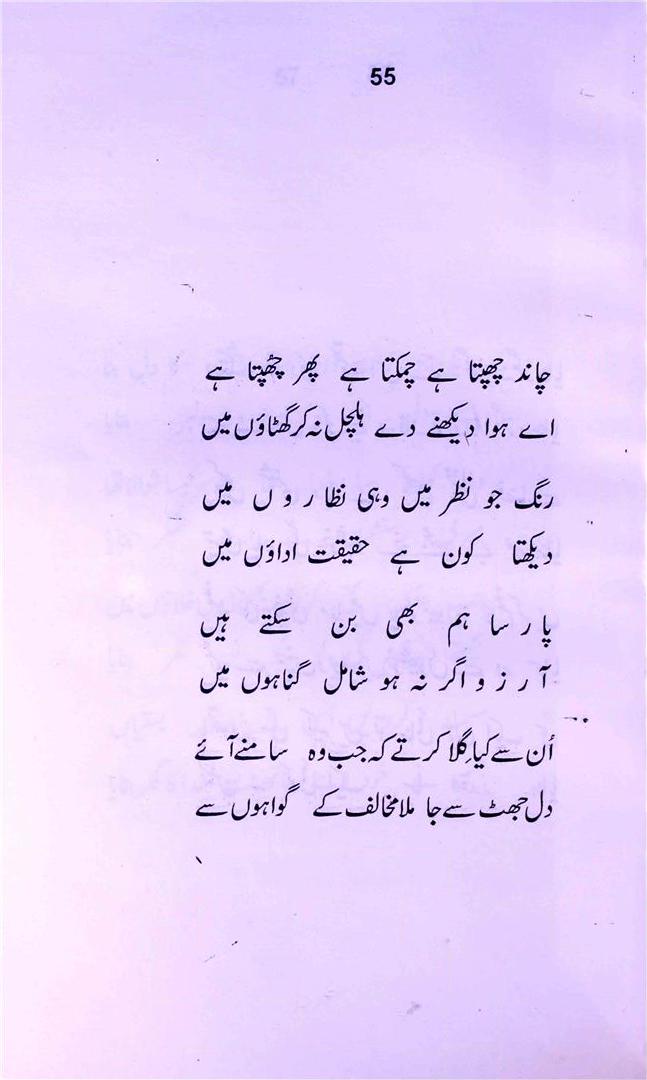 55
چاند چھپتا ہے چمکتا ہے پھر چھپتا ہے
اے ہوا دیکھنے دے ہلچل نہ کر گھٹاؤں میں
رنگ جو نظر میں وہی نظاروں میں
دیکھتا کون ہے حقیقت اداؤں میں
پارسا ہم بھی بن سکتے ہیں
آرزو اگر نہ ہو شامل گناہوں میں
اُن سے کیا گِلا کرتے کہ جب وہ سامنے آئے
دل جھٹ سے جا ملا مخالف کے گواہوں سے